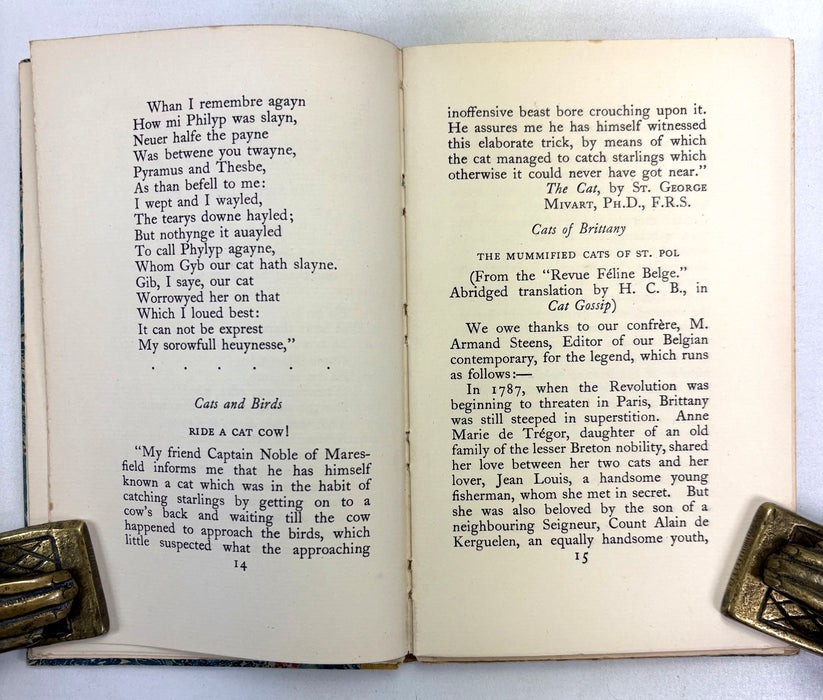 Whan I remembre agayn
How mi Philyp was slayn,
Neuer halfe the payne
Was betwene you twayne,
Pyramus and Thesbe,
As than befell to me:
I wept and I wayled,
The tearys downe hayled;
But nothynge it auayled
To call Phylyp agayne,
Whom Gyb our cat hath slayne.
Gib, I saye, our cat
Worrowyed her on that
Which I loued best:
It can not be exprest
My sorowfull heuynesse,"
. . . . . .
Cats and Birds
RIDE A CAT COW!
"My friend Captain Noble of Mares-
field informs me that he has himself
known a cat which was in the habit of
catching starlings by getting on to a
cow's back and waiting till the cow
happened to approach the birds, which
little suspected what the approaching
14
inoffensive beast bore crouching upon it.
He assures me he has himself witnessed
this elaborate trick, by means of which
the cat managed to catch starlings which
otherwise it could never have got near."
The Cat, by ST. GEORGE
MIVART, PH.D., F.R.S.
Cats of Brittany
THE MUMMIFIED CATS OF ST. POL
(From the "Revue Féline Belge."
Abridged translation by H. C. B., in
Cat Gossip)
We owe thanks to our confrère, M.
Armand Steens, Editor of our Belgian
contemporary, for the legend, which runs
as follows:—
In 1787, when the Revolution was
beginning to threaten in Paris, Brittany
was still steeped in superstition. Anne
Marie de Trégor, daughter of an old
family of the lesser Breton nobility, shared
her love between her two cats and her
lover, Jean Louis, a handsome young
fisherman, whom she met in secret. But
she was also beloved by the son of a
neighbouring Seigneur, Count Alain de
Kerguelen, an equally handsome youth,
15